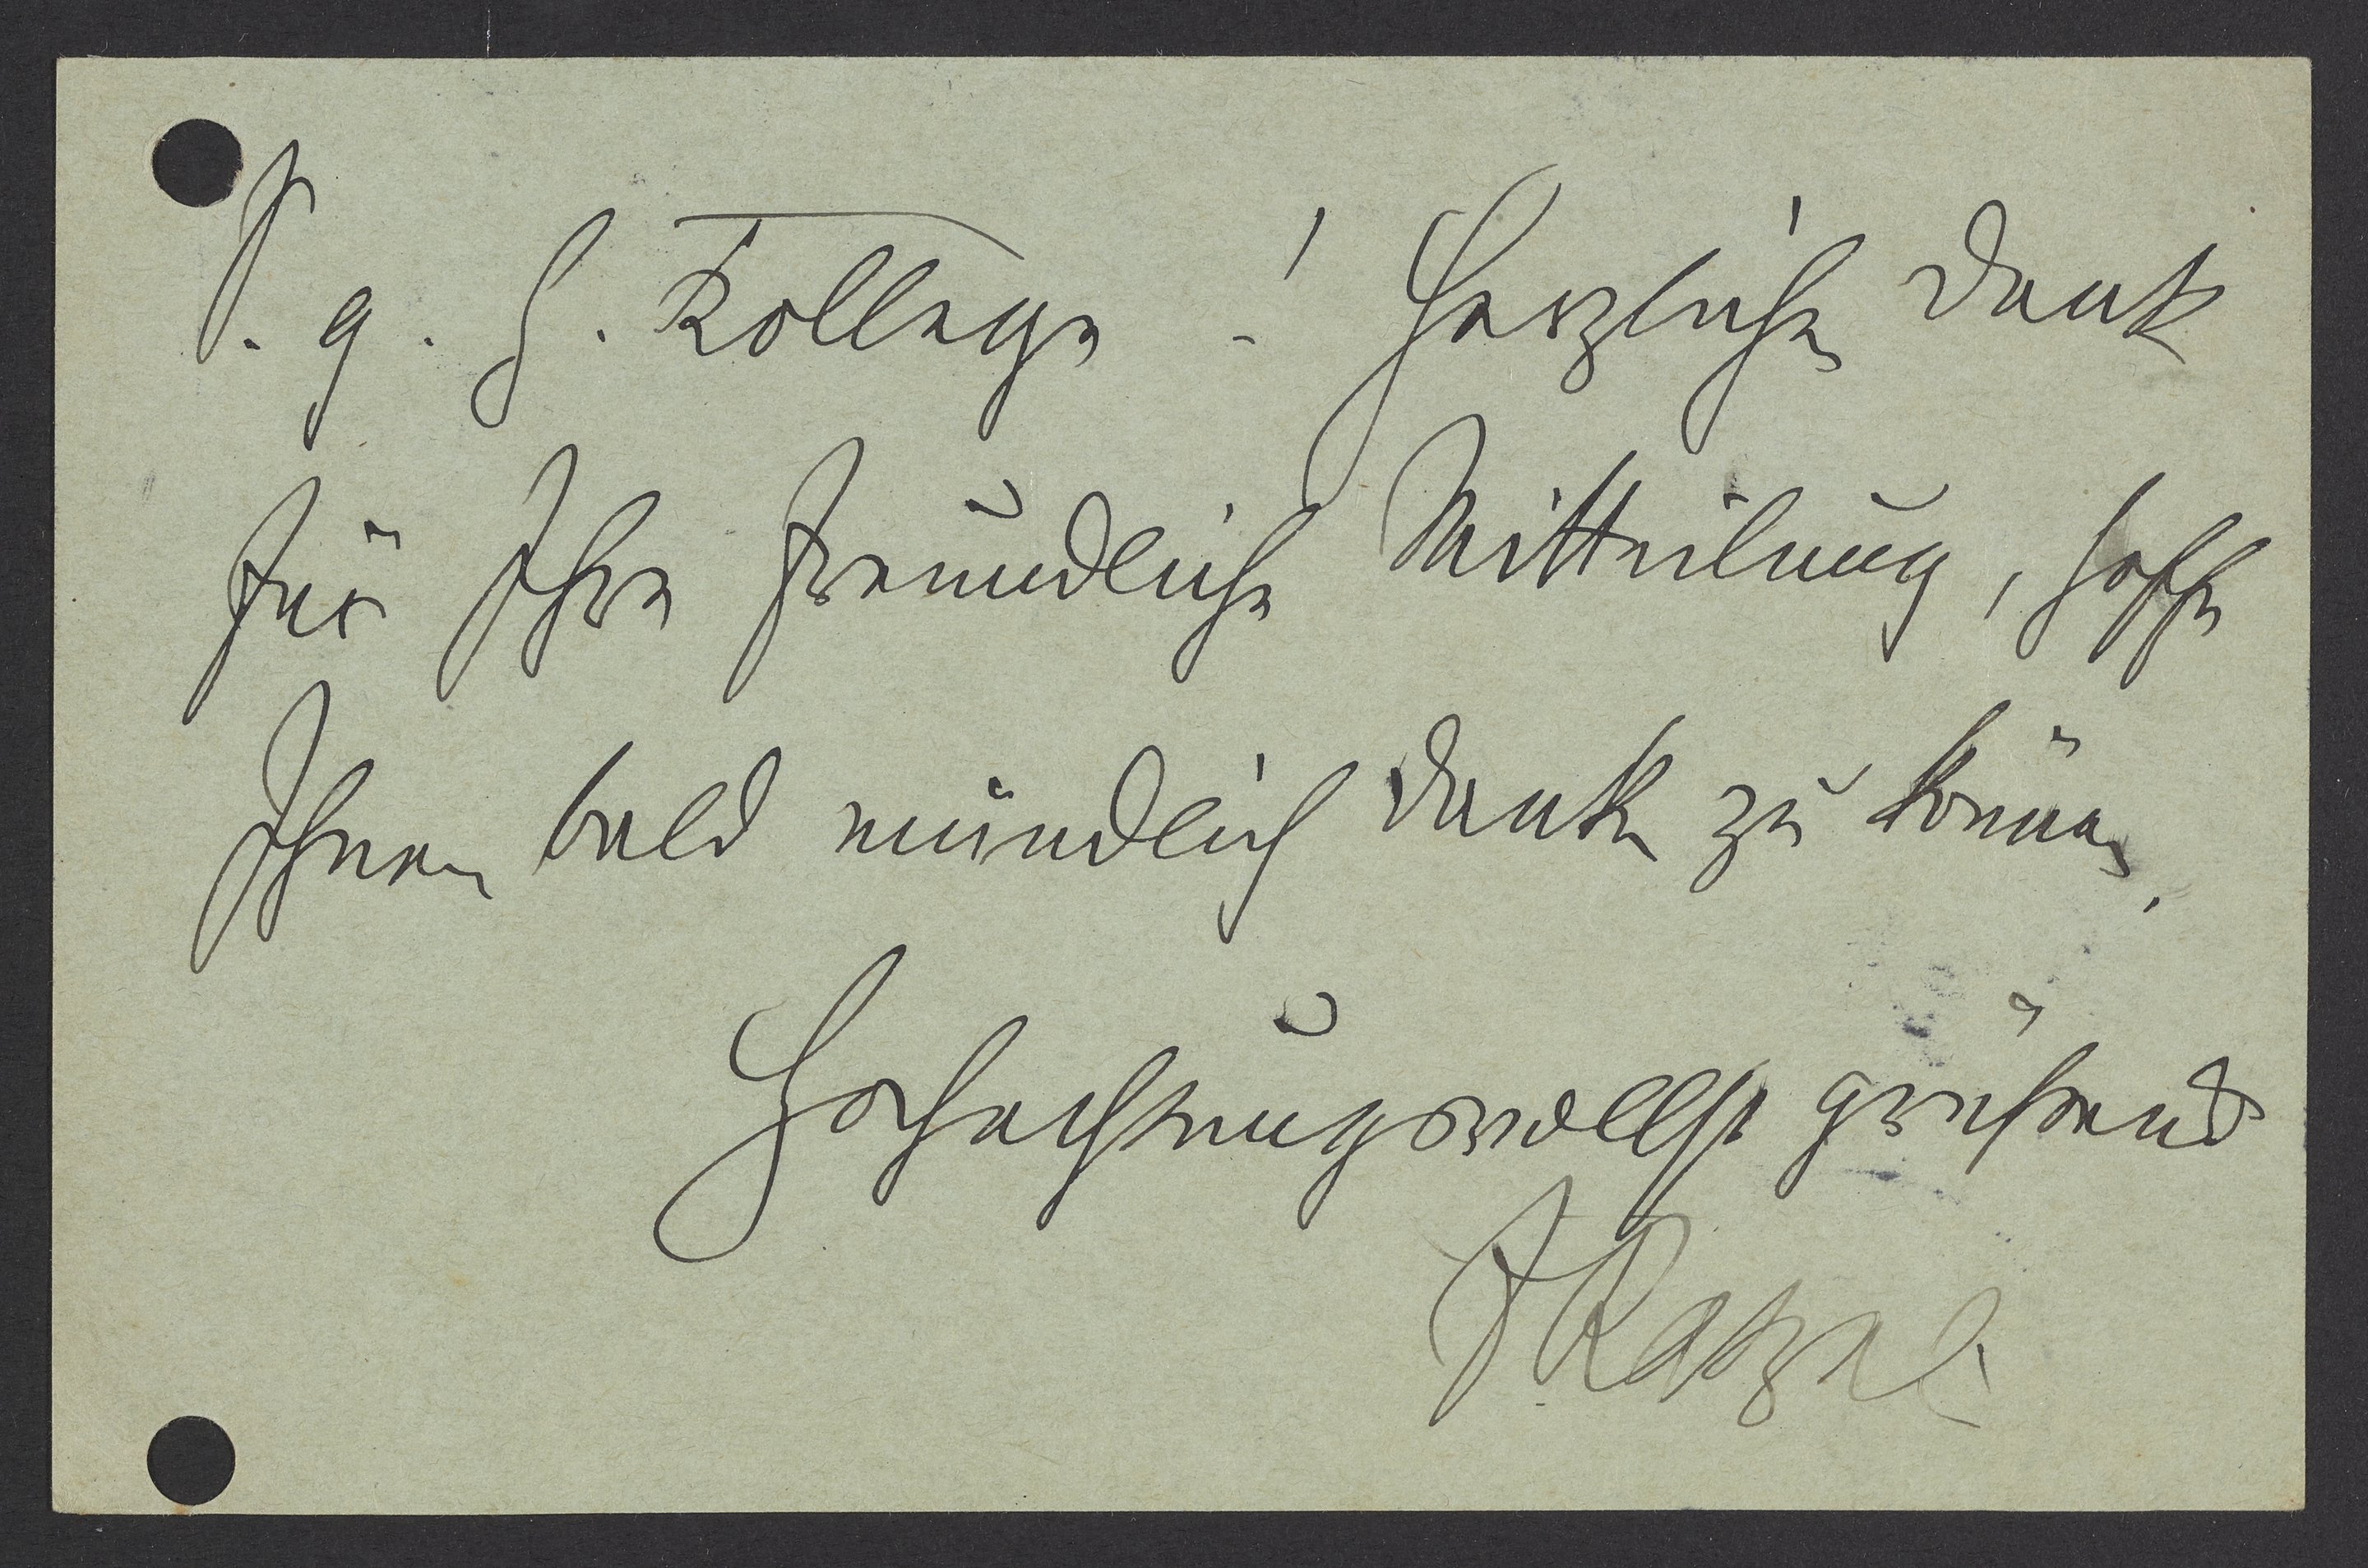 S. g. H. Kollege! Herzlichen Dank
für Ihre freundliche Mitteilung, hoffe
Ihnen bald mündlich danken zu können.
Hochachtungsvollst grüßend
F Ratzel